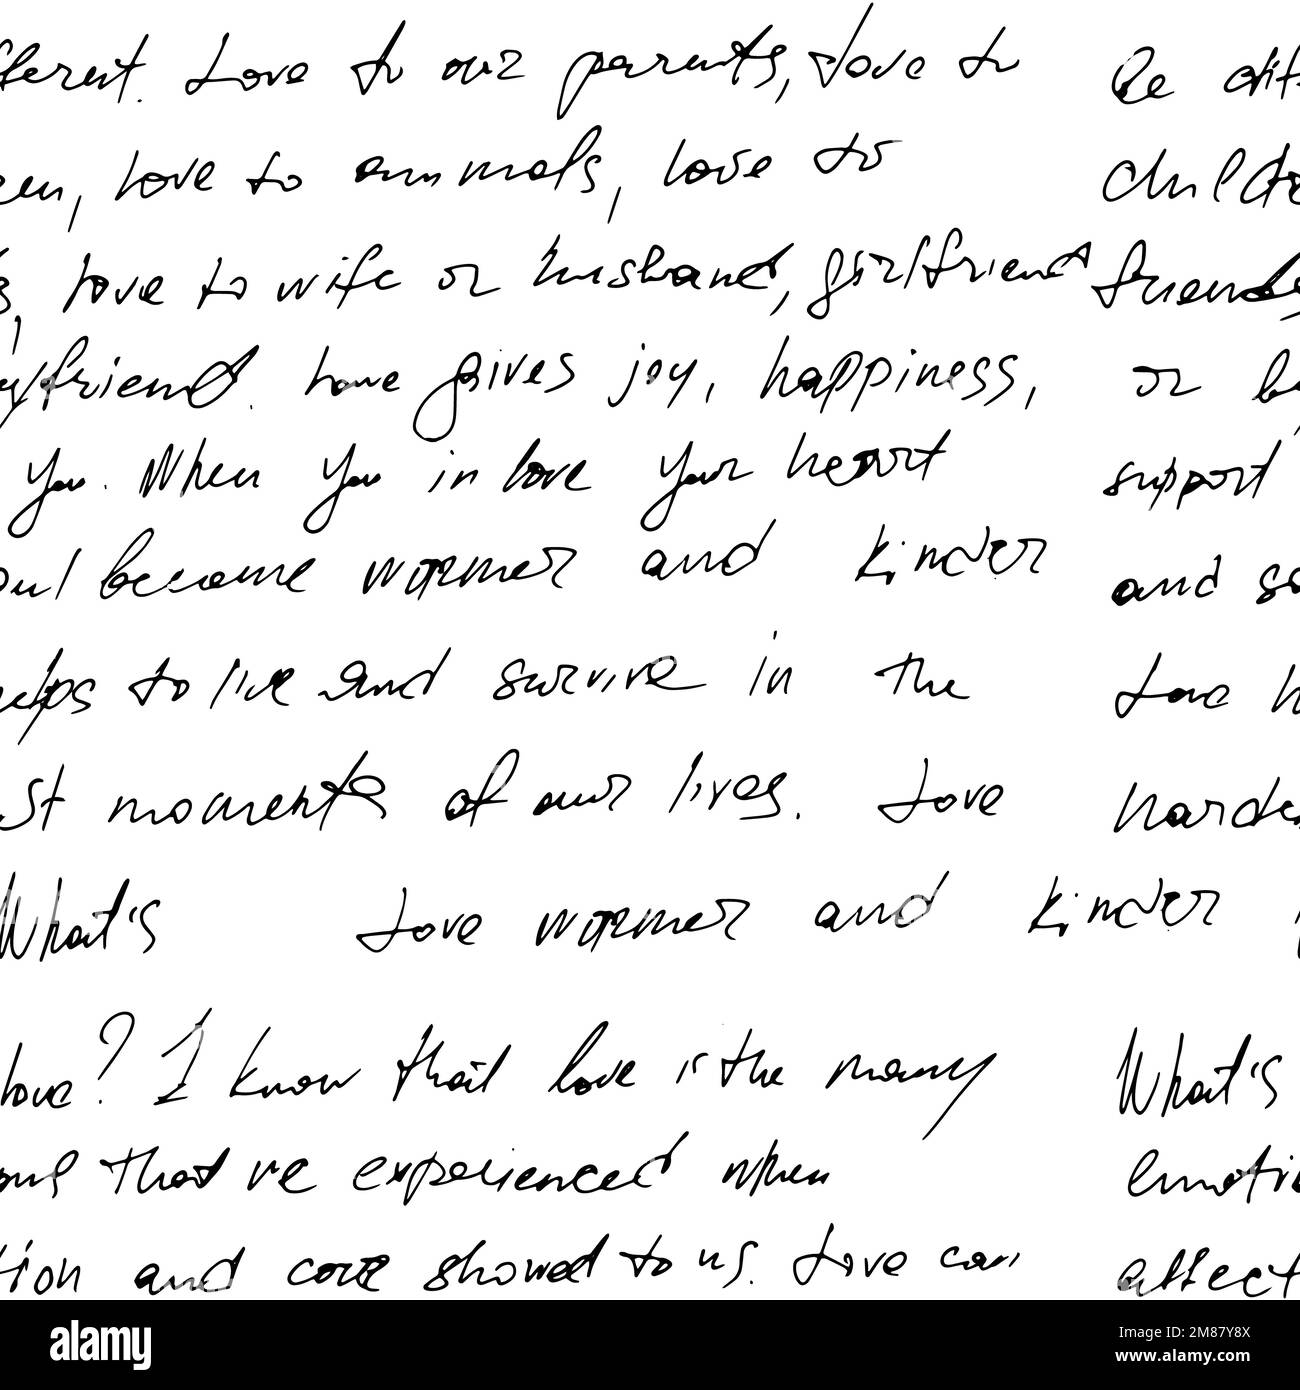 fferent. Love to our parents, love to Be diff
ren, love to animals, love to childr
s, love to wife or husband, girlfriend friends
yfriend. Love gives joy, happiness, or b
you. When you in love your heart support
oul become warmer and kinder and so
elps to live and survive in the Love h
st moments of our lives. Love harde
What's Love warmer and kinder
love? I know that love is the many What's
ons that've experienced when emotio
tion and care showed to us. Love can affect
alamy
Image ID: 2M87Y8X
www.alamy.com